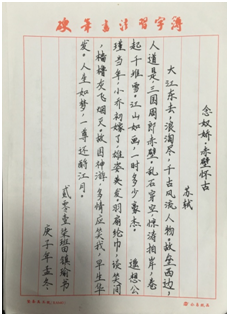 硬笔书法習字簿
念奴娇·赤壁怀古
苏轼
大江东去,浪淘尽,千古风流人物。故垒西边,
人道是:三国周郎赤壁。乱石穿空,惊涛拍岸,卷
起千堆雪。江山如画,一时多少豪杰。遥想公
瑾当年,小乔初嫁了,雄姿英发。羽扇纶巾,谈笑间
,樯橹灰飞烟灭。故国神游,多情应笑我,早生华
发。人生如梦,一尊还酹江月。
贰零壹柒班田镇瑜书
庚子年孟冬